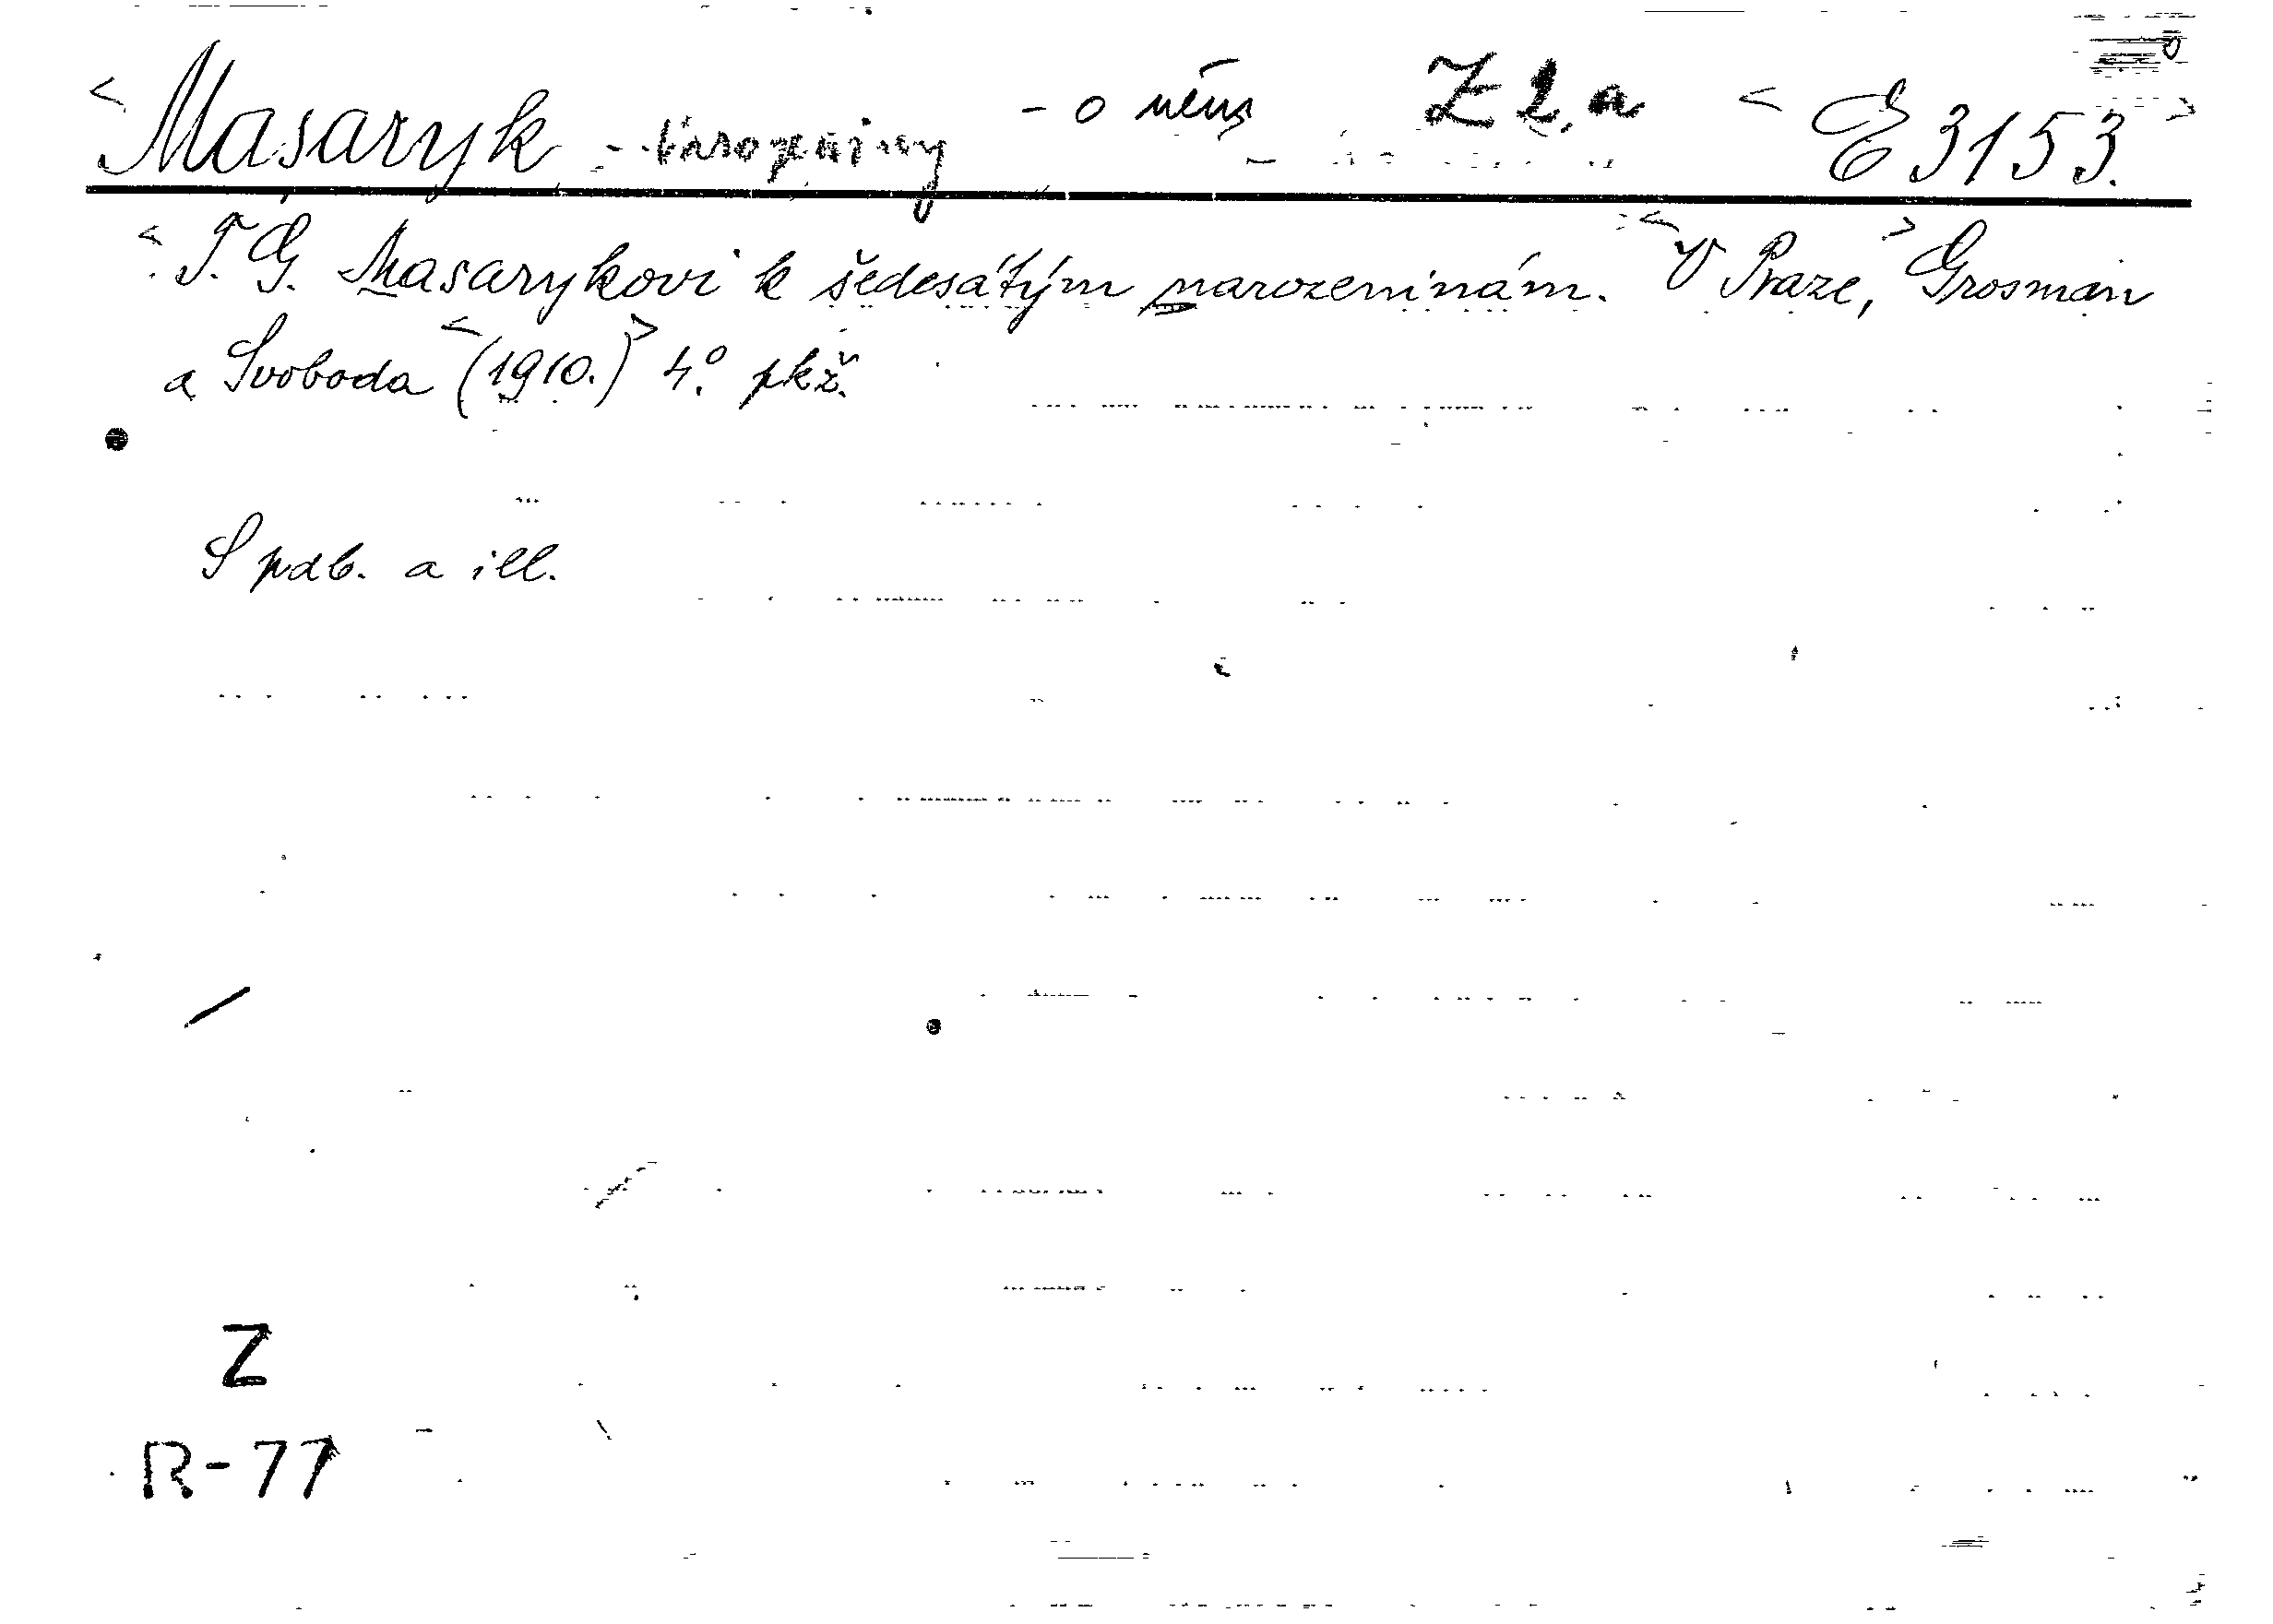 <Masaryk - narozeniny - o něm Z 2.a <E 3153.>
<T. G. Masarykovi k šedesátým narozeninám. <V Praze,> Grosman
a Svoboda <(1910.)> 4.° pkž.
S pdb. a ill.
Z
R-77